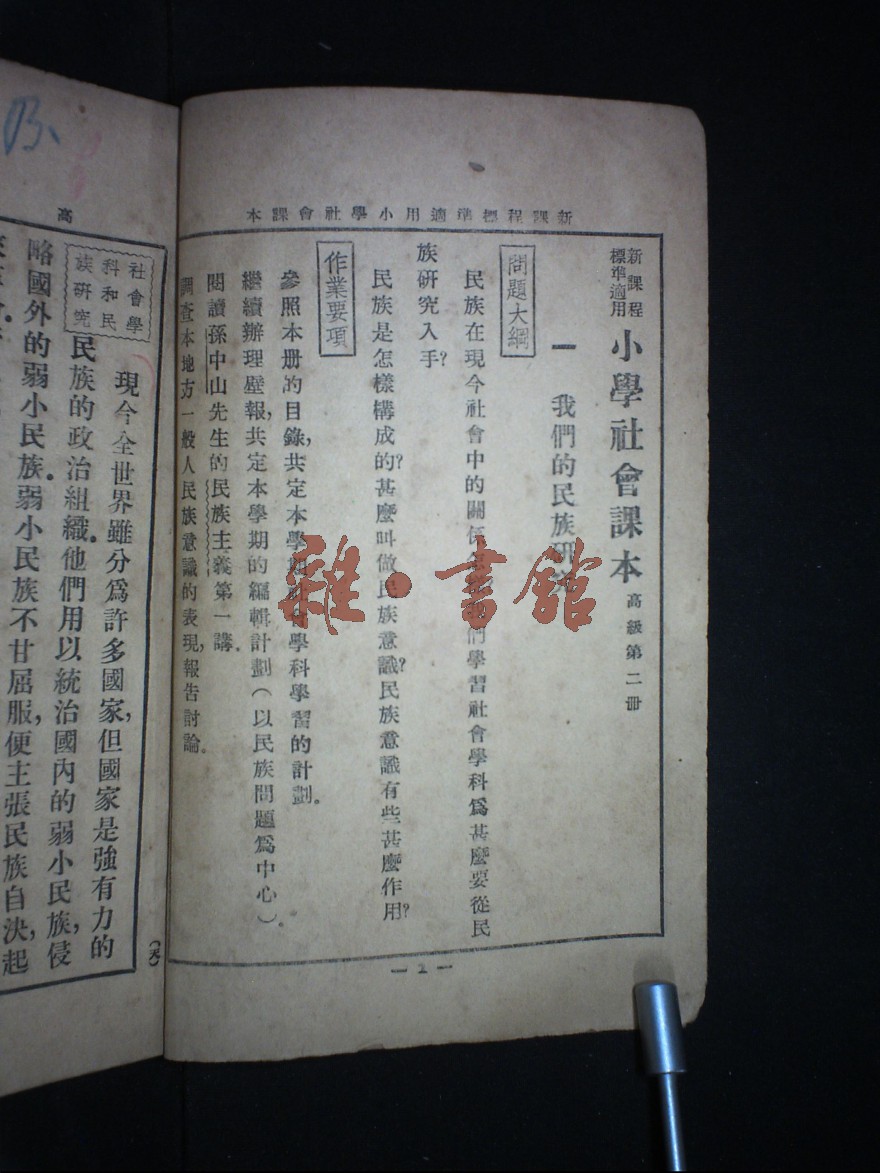 新課程標準適用小學社會課本
新課程
標準適用
小學社會課本
高級第二冊
一 我們的民族研究
問題大綱
民族在現今社會中的關係怎樣?我們學習社會學科爲甚麼要從民
族研究入手?
民族是怎樣構成的?甚麼叫做民族意識?民族意識有些甚麼作用?
作業要項
參照本册的目錄,共定本學期社會學科學習的計劃。
繼續辦理壁報,共定本學期的編輯計劃(以民族問題爲中心)。
閱讀孫中山先生的民族主義第一講。
調查本地方一般人民族意識的表現,報告討論。
— 1 —
雜·書館
高
社會學
科和民
族研究
現今全世界雖分爲許多國家,但國家是強有力的
民族的政治組織。他們用以統治國內的弱小民族,侵
略國外的弱小民族。弱小民族不甘屈服,便主張民族自決,起